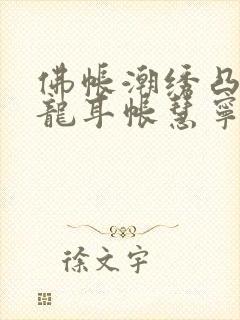 佛帐潮绣凸
龍耳帐慧寧
徐文宇